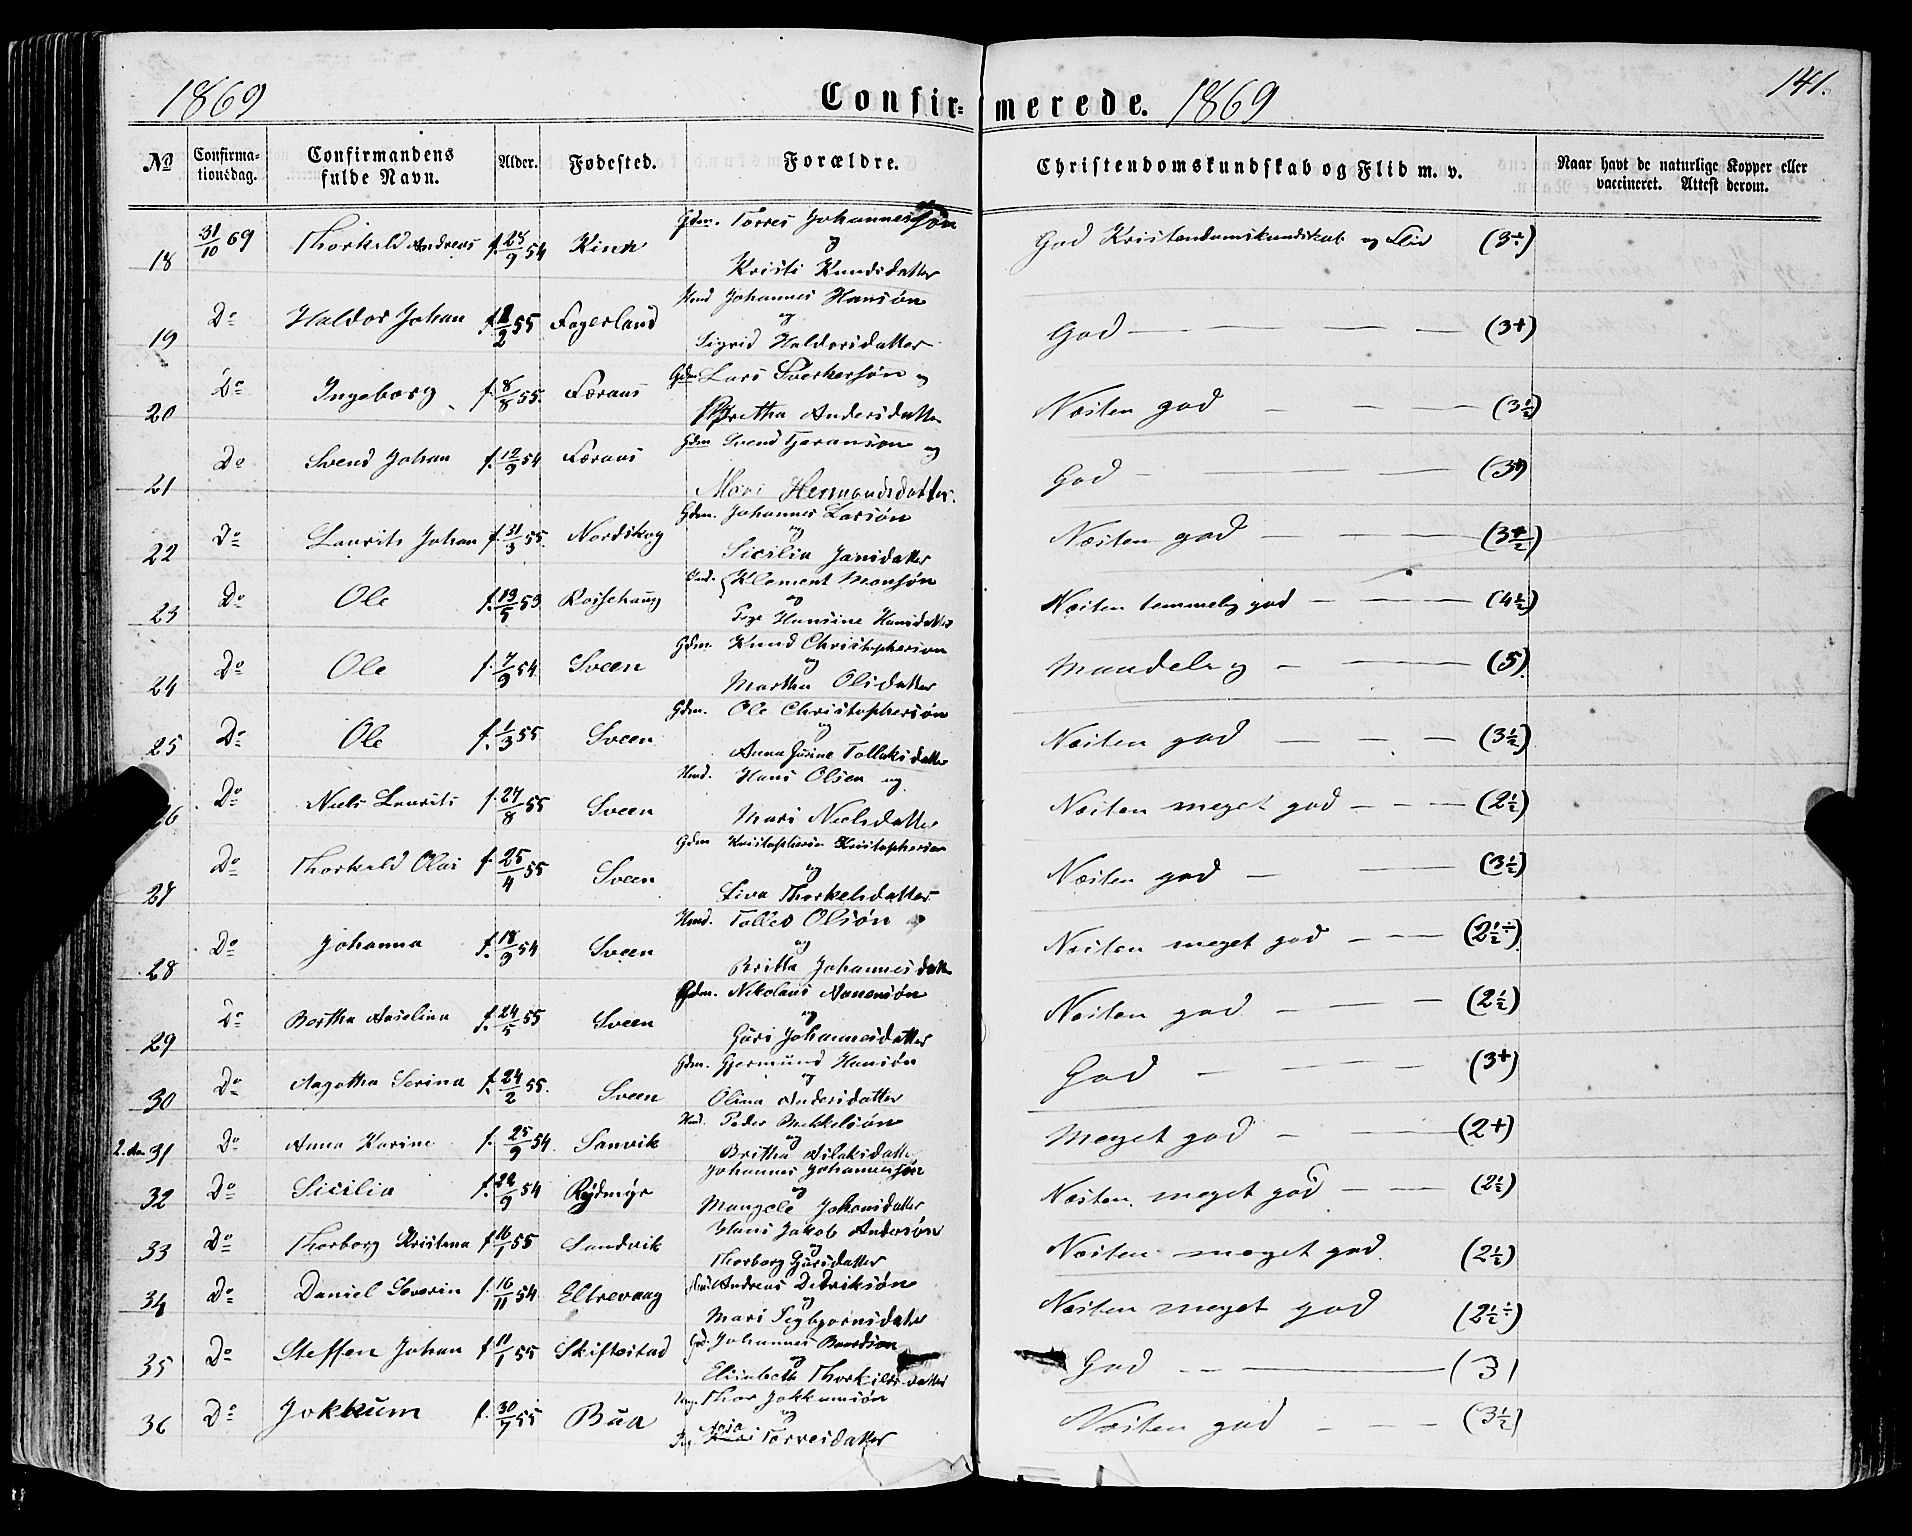 1869 Confirmerede. 1869 141.
No Confirmationsdag. Confirmandens fulde Navn. Alder. Fødested. Forældre. Christendomskundskab og Flid m. v. Naar havt de naturlige Kopper eller vaccineret. Attest derom.
Gdm. Torres Johannessøn
18 31/10 69 Thorkeld Andreas f. 28/9 54 Kinn og God Kristendomskundskab og Flid (3÷)
Kristi Knudsdatter
Hmd Johannes Hansøn
19 Do Haldor Johan f. 1/2 55 Fagerland og God — — — — (3+)
Sigrid Haldorsdatter
Gdm Lars Sverkersøn og
20 Do Ingeborg f. 8/8 55. Færaas Næsten god — — — (3½)
Bretha Andersdatter
Gdm Svend Gøransøn og
21 Do Svend Johan f. 12/9 54 Færaas God — — — (3+)
Mari Hermandsdatter.
Gdm. Johannes Larsøn
22 Do Laurits Johan f. 31/3 55. Nordskog og Næsten god — — — (3½)
Sicilia Jansdatter
Klement Monsøn
23 Do Ole f. 19/5 53 og Næsten temmelig god — — — (4½)
Pige Hansine Hansdatter
Gdm. Knud Christophersøn
24 Do Ole f. 7/9 54 Sveen og Maadelig — — — (5)
Martha Olsdatter
Gdm. Ole Christophersøn
25 Do Ole f. 1/3 55 Sveen og Næsten god — — — (3½)
Anna Gurine Tollaksdatter
Hmd. Hans Olsen og
26 Do Niels Laurits f. 27/8 55 Sveen Næsten meget god — — — (2½)
Mari Nielsdatter
Gdm Kristophersen Kristophersen
27 Do Thorkeld Olai f. 25/4 55 Sveen og Næsten god — — — (3½)
Siva Thorkelsdatter
Hmd. Tolles Olsøn
28 Do Johanna f. 18/9 54 Sveen og Næsten meget god — — — (2½÷)
Britta Johannesdatter
Gdm. Nikolaus Aanensøn
29 Do Bertha Aaselina f. 24/5 55 Sveen og Næsten god — — — (2½)
Guri Johannesdatter
Gdm. Gjermund Hansøn
30 Do Aagotha Serina f. 24/2 55. Sveen og God — — — (3+)
Olina Andersdatter
Hmd. Peder Mikkelsøn
31 Do Anna Karine f. 25/9 54. Sanvik og Meget god — — (2+)
Britha Aslaksdatter
Johannes Johannessøn
32 Do Sicilia f. 24/9 54 Rydmyr og Næsten meget god — — — (2½)
Mangele Johansdatter
Hans Jakob Andersøn
33 Do Thorborg Kristena f. 16/1 55 Sandvik og Næsten meget god (2½)
Thorborg Gursdatter
Andreas Didriksøn
34 Do Daniel Severin f. 16/11 54 Eltrevaag og Næsten meget god (2½÷)
Mari Sigbjørnsdatter
Johannes Baardsøn
35 Do Steffen Johan f. 11/1 55 Skiftestad og God — — (3)
Elisabeth Thorkildsdatter
Thor Jokkumsøn
36 Do Jokkum f. 30/7 55 Bua og Næsten god — — (3½)
Torresdatter